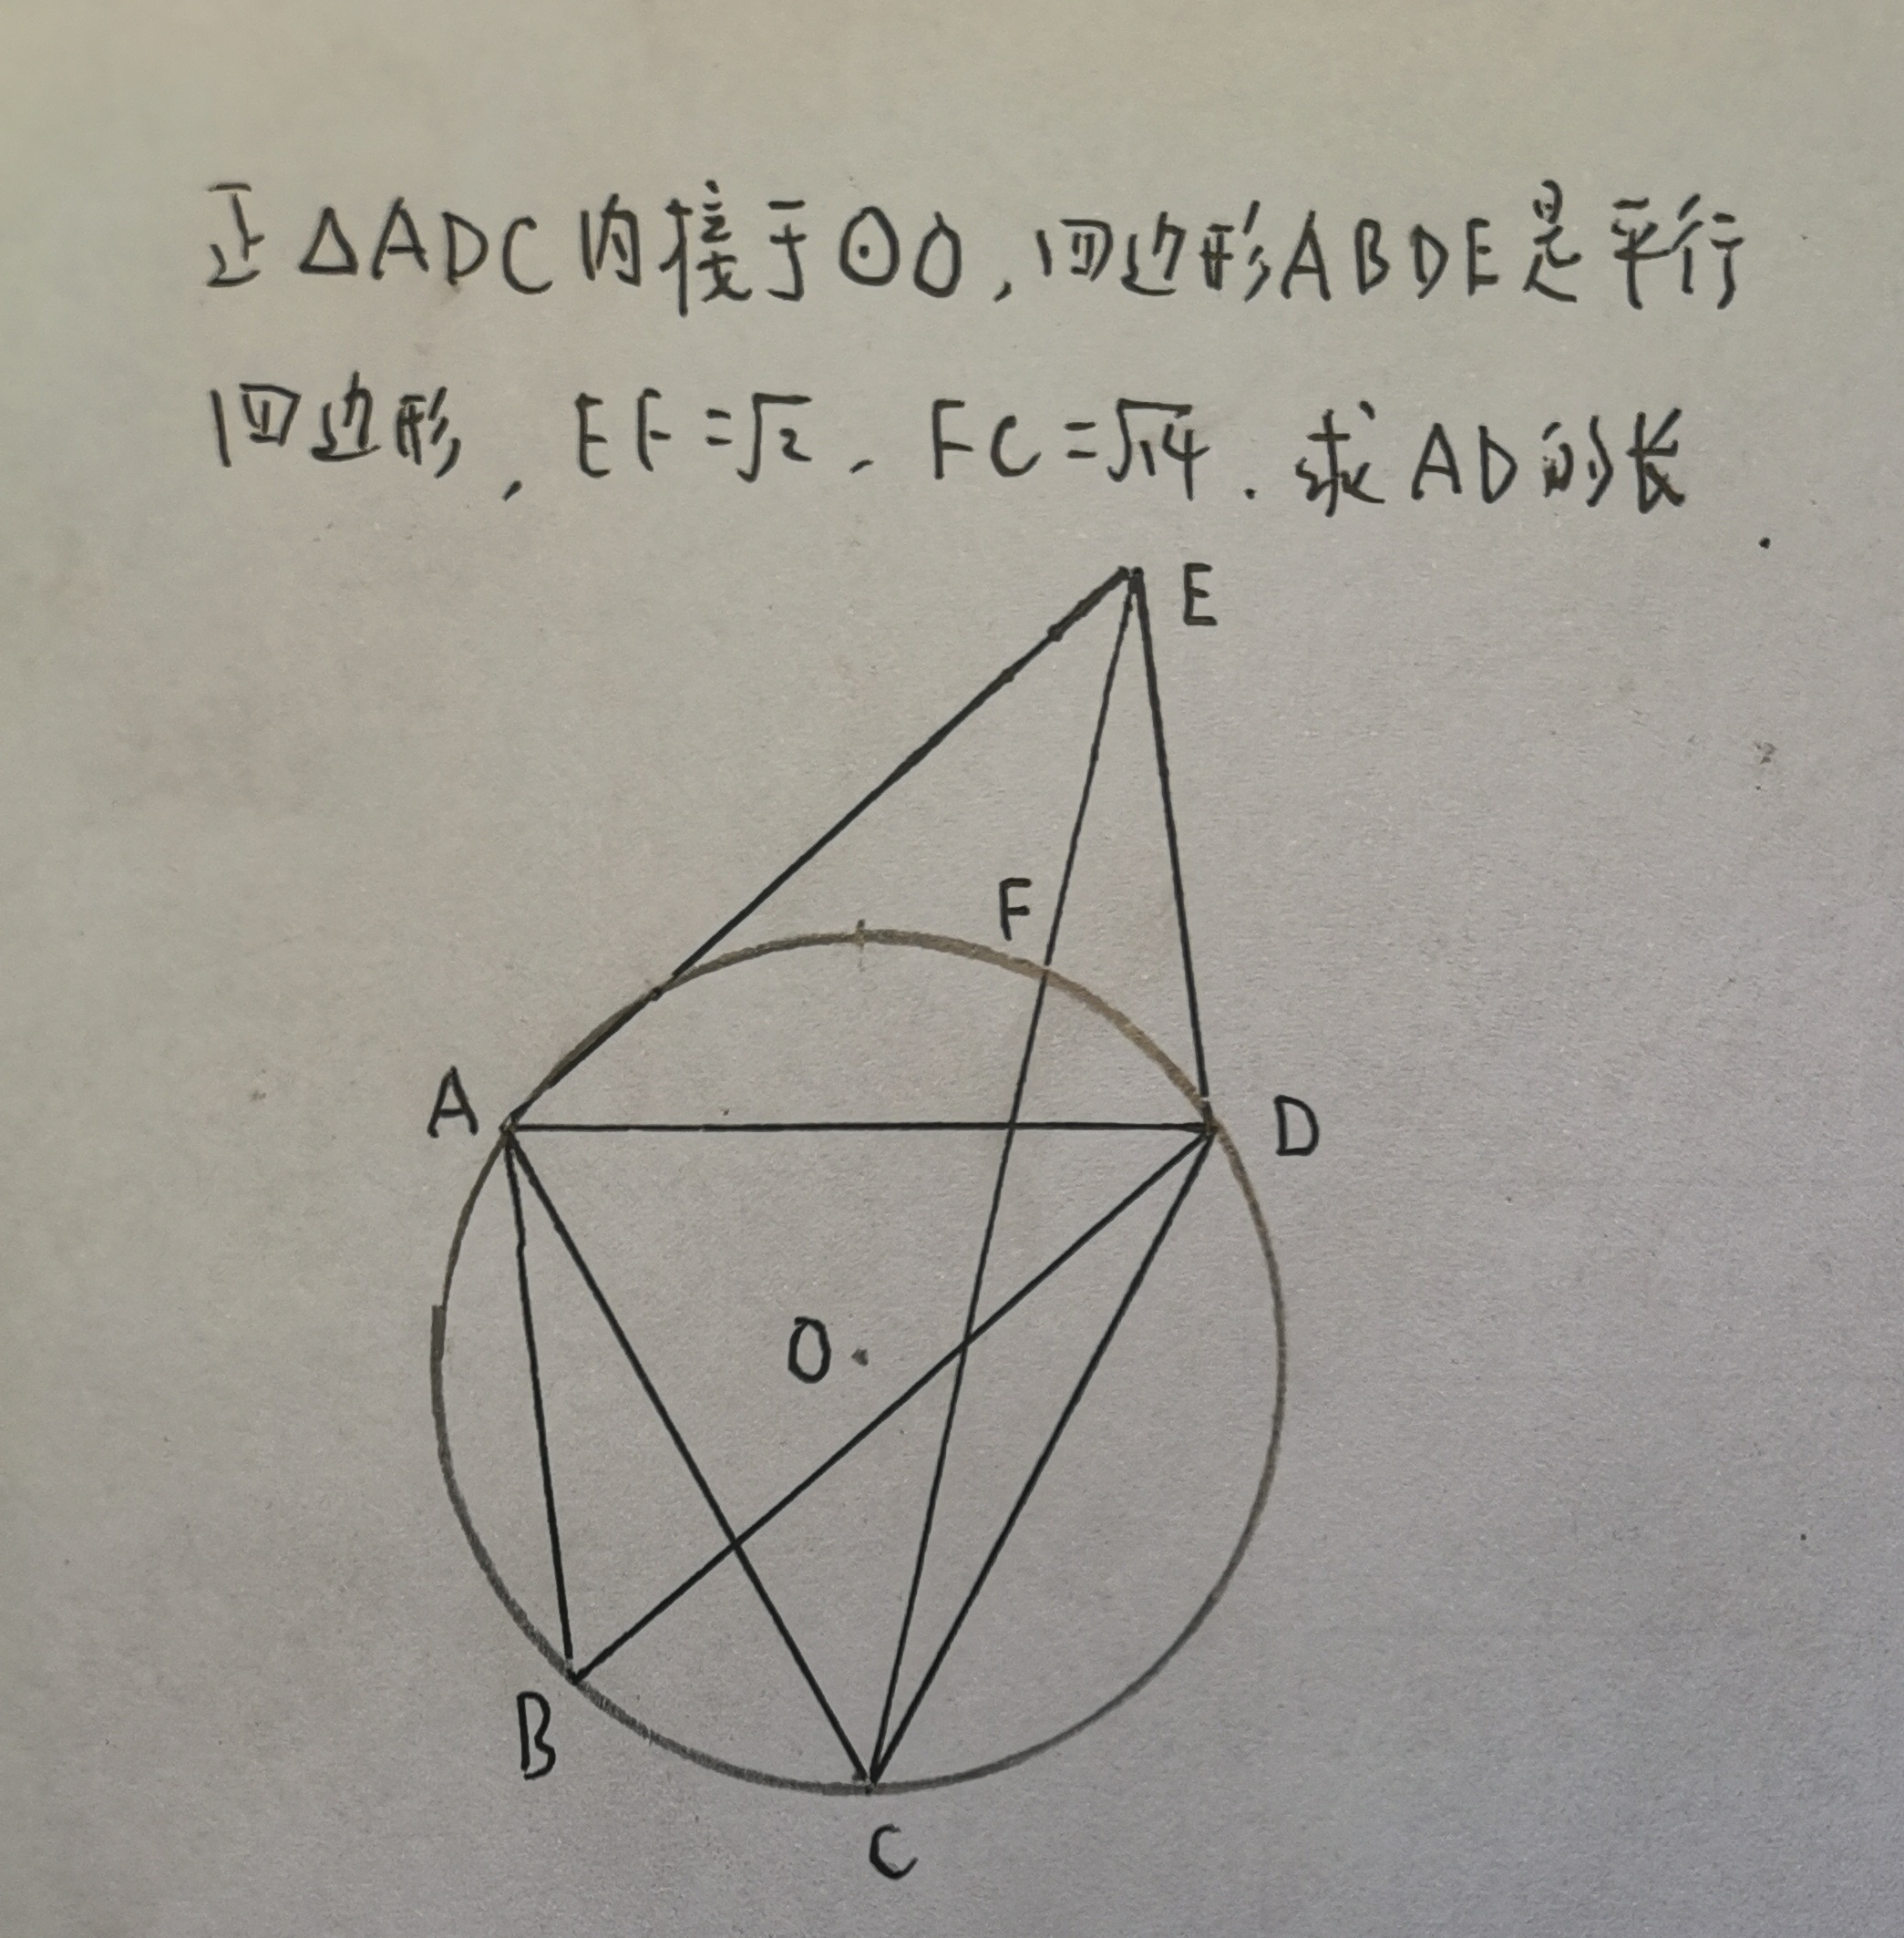 正△ADC内接于⊙O,四边形ABDE是平行
四边形,EF=√2、FC=√14.求AD的长.
E
F
A
D
O
B
C